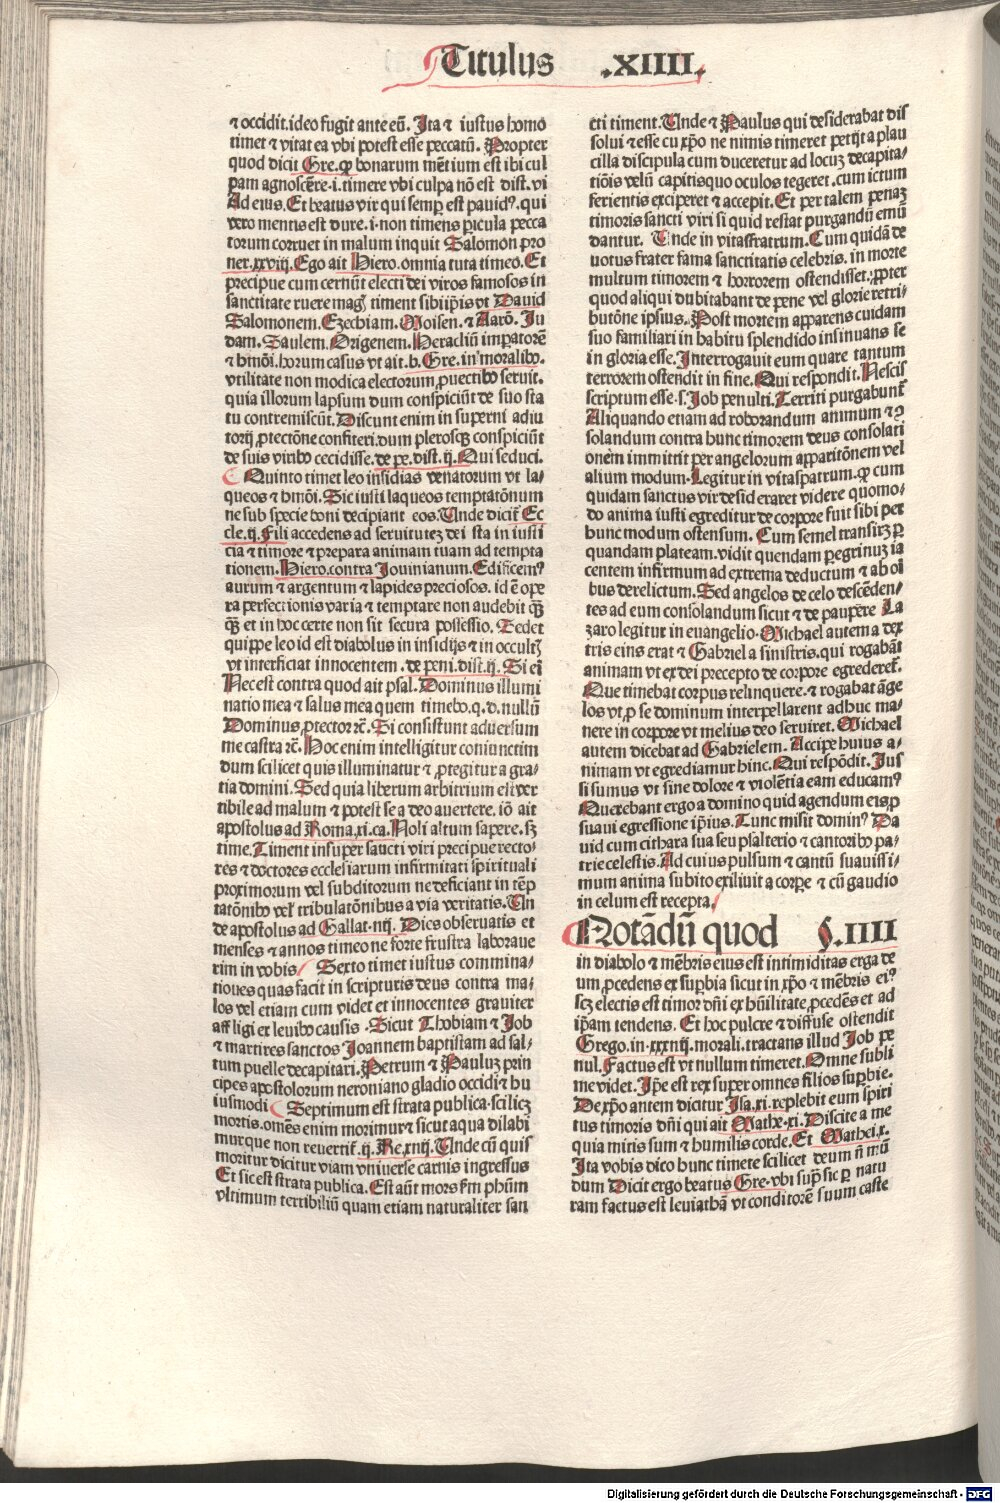 Titulus .XIIII.
⁊ occidit.ideo fugit ante eū. Ita ⁊ iustus homo
timet ⁊ vitat ea vbi potest esse peccatū. Propter
quod dicit Gre. ꝙ bonarum mētium est ibi cul
pam agnoscere.i.timere vbi culpa nō est dist. vi
Ad eius. Et beatus vir qui semp est pauidꝰ. qui
vero mentis est dure.i.non timens picula pecca
torum corruet in malum inquit Salomon pro
uer.xxviij. Ego ait Hiero.omnia tuta timeo. Et
precipue cum cernūt electi dei viros famosos in
sanctitate ruere magꝭ timent sibiipis vt Dauid
Salomonem. Ezechiam. Moisen. ⁊ Aarō. Ju
dam. Saulem. Origenem. Heracliū impatorē
⁊ hmōi.horum casus vt ait.b. Gre. in moralibꝰ.
vtilitate non modica electorum puectibꝰ seruit.
quia illorum lapsum dum conspiciūt de suo sta
tu contremiscūt. Discunt enim in superni adiu
torij ptectōne confiteri.dum plerosqꝫ conspiciūt
de suis viribꝰ cecidisse.de pe. dist.ij. Qui seduci.
Quinto timet leo insidias venatorum vt la⸗
queos ⁊ hmōi. Sic iusti laqueos temptatōnum
ne sub specie boni decipiant eos. Unde dicit Ec
cle.ij. Fili accedens ad seruitutez dei sta in iusti
cia ⁊ timore ⁊ prepara animam tuam ad tempta
tionem. Hiero.contra Jouinianum. Edificemꝰ
aurum ⁊ argentum ⁊ lapides preciosos. id ē ope
ra perfectionis varia ⁊ temptare non audebit qꝫ
qꝫ et in hoc certe non sit secura possessio. Sedet
quippe leo id est diabolus in insidijs ⁊ in occultꝭ
vt interficiat innocentem. de peni. dist.ij. Si eī
Nec est contra quod ait psal. Dominus illumi
natio mea ⁊ salus mea quem timebo.q.d.nullū
Dominus ptector ⁊c. Si consistunt aduersum
me castra ⁊c. Hoc enim intelligitur coniunctim
dum scilicet quis illuminatur ⁊ ptegitur a gra⸗
tia domini. Sed quia liberum arbitrium est ver
tibile ad malum ⁊ potest se a deo auertere. iō ait
apostolus ad Roma.xi.ca. Noli altum sapere.sꝫ
time. Timent insuper sancti viri precipue recto⸗
res ⁊ doctores ecclesiarum infirmitati spirituali
proximorum vel subditorum ne deficiant in tēp
tatōnibꝰ vel tribulatōnibus a via veritatis. Un
de apostolus ad Gallat.iiij. Dies obseruatis et
menses ⁊ annos timeo ne forte frustra laboraue
rim in vobis Sexto timet iustus commina⸗
tiones quas facit in scripturis deus contra ma⸗
los vel etiam cum videt et innocentes grauiter
affligi et leuibꝰ causis . Sicut Thobiam ⁊ Job
⁊ martires sanctos Joannem baptistam ad sal⸗
tum puelle decapitari. Petrum ⁊ Pauluz prin
cipes apostolorum neroniano gladio occidi ⁊ hu
iusmodi Septimum est strata publica.scilicꝫ
mortis.omēs enim morimur ⁊ sicut aqua dilabi
mur que non reuertit̄.ij. Re.xiiij. Unde cū quis
moritur dicitur viam vniuerse carnis ingressus
Et sic est strata publica. Est aūt mors fm phūm
vltimum terribiliū quam etiam naturaliter san
cti timent. Unde ⁊ Paulus qui desiderabat dis
solui ⁊ esse cū xpo ne nimis timeret petijt a plau
cilla discipula cum duceretur ad locuz decapita⸗
tiōis velū capitis quo oculos tegeret.cum ictum
ferientis exciperet ⁊ accepit. Et per talem penaz
timoris sancti viri si quid restat purgandū emū
dantur. Unde in vitasfratrum. Cum quidā de
uotus frater fama sanctitatis celebris. in morte
multum timorem ⁊ horrorem ostendisset. ppter
quod aliqui dubitabant de pene vel glorie retri⸗
butōne ipsius. Post mortem apparens cuidam
suo familiari in habitu splendido insinuans se
in gloria esse. Interrogauit eum quare tantum
terrorem ostendit in fine. Qui respondit. Nescis
scriptum esse.s. Job penulti. Territi purgabunt̄
Aliquando etiam ad roborandum animum ⁊ ꝯ
solandum contra hunc timorem deus consolati
onem immittit per angelorum apparitōnem vel
alium modum. Legitur in vitaspatrum. ꝙ cum
quidam sanctus vir desideraret videre quomo⸗
do anima iusti egreditur de corpore fuit sibi per
hunc modum ostensum. Cum semel transiꝫ p
quandam plateam.vidit quendam pegrinuz ia
centem infirmum ad extrema deductum ⁊ ab oī
bus derelictum. Sed angelos de celo descēden⸗
tes ad eum consolandum sicut ⁊ de paupere La
zaro legitur in euangelio. Michael autem a dex
tris eius erat ⁊ Gabriel a sinistris.qui rogabāt
animam vt ex dei precepto de corpore egrederet̄.
Que timebat corpus relinquere. ⁊ rogabat āge
los vt p se dominum interpellarent adhuc ma⸗
nere in corpore vt melius deo seruiret. Michael
autem dicebat ad Gabrielem. Accipe huius a⸗
nimam vt egrediamur hinc. Qui respōdit. Jus
si sumus vt sine dolore ⁊ violētia eam educamꝰ
Querebant ergo a domino quid agendum eis p
suaui egressione ipius. Tunc misit dominꝰ Da
uid cum cithara sua seu psalterio ⁊ cantoribꝰ pa⸗
trie celestis. Ad cuius pulsum ⁊ cantū suauissi⸗
mum anima subito exiliuit a corpe ⁊ cū gaudio
in celum est recepta.
Notādū quod §.IIII
in diabolo ⁊ mēbris eius est intimiditas erga de
um pcedens ex supbia sicut in xpo ⁊ mēbris eiꝰ
scꝫ electis est timor dn̄i ex hūilitate pcedēs et ad
ip̄am tendens. Et hoc pulcre ⁊ diffuse ostendit
Grego.in.xxxiiij.morali.tractans illud Job pe
nul. Factus est vt nullum timeret. Omne subli
me videt. Ip̄e est rex super omnes filios supbie.
De xpo antem dicitur Isa.xi.replebit eum spiri
tus timoris dn̄i qui ait Mathe.xi. Discite a me
quia miris sum ⁊ humilis corde. Et Mathei.x.
Ita vobis dico hunc timete scilicet deum n̄ mū
dum Dicit ergo beatus Gre.vbi sup̄ sic p natu
ram factus est leuiathā vt conditorē suum caste
Digitalisierung gefördert durch die Deutsche Forschungsgemeinschaft - DFG